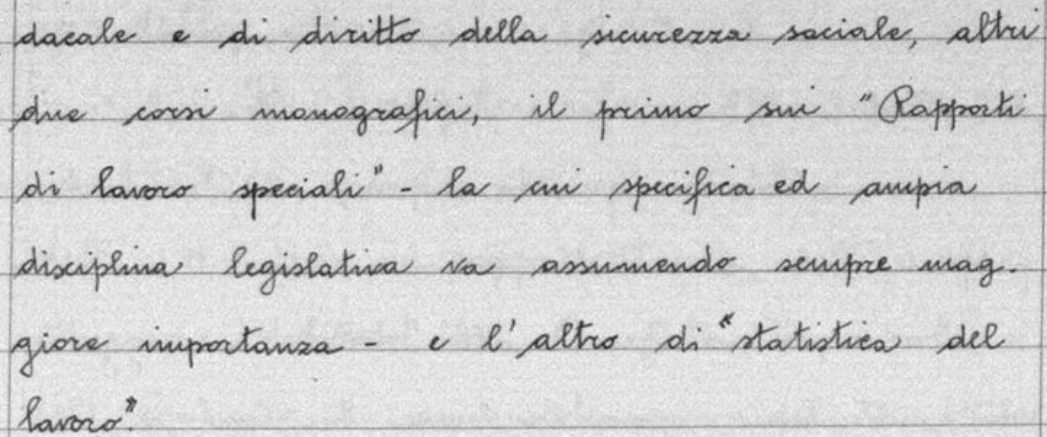 dacale e di diritto della sicurezza sociale, altri
due corsi monografici, il primo sui "Rapporti
di lavoro speciali" - la cui specifica ed ampia
disciplina legislativa va assumendo sempre mag-
giore importanza - e l'altro di "statistica del
lavoro".